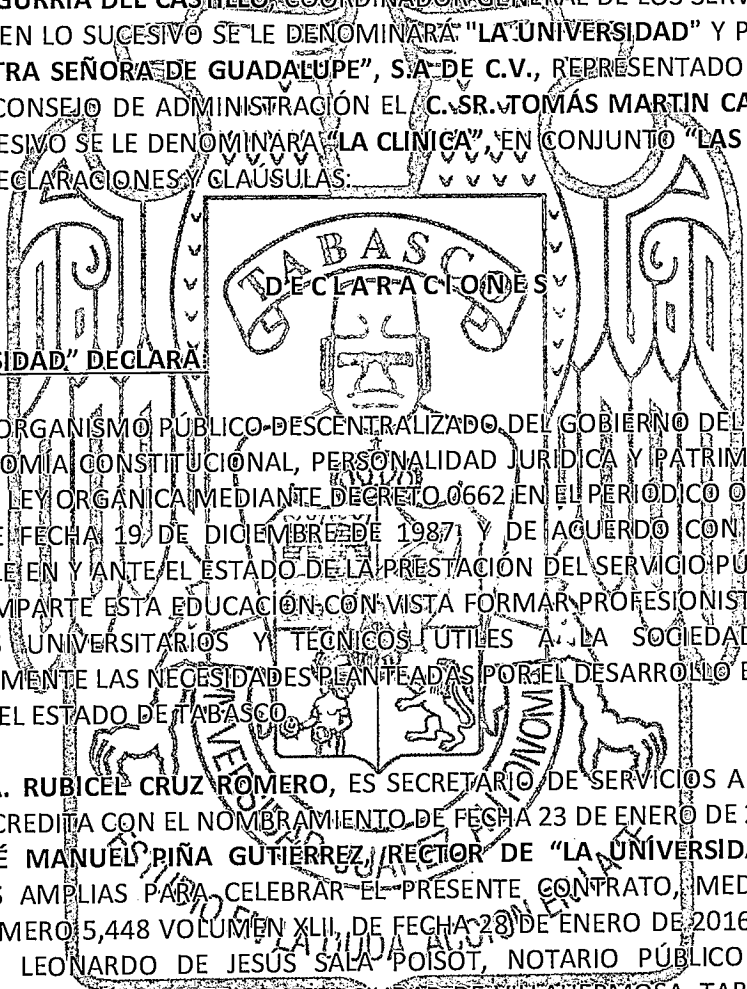 GURRIA DEL CASTILLO, COORDINADOR GENERAL DE LOS SERV
EN LO SUCESIVO SE LE DENOMINARÁ "LA UNIVERSIDAD" Y P
TRA SEÑORA DE GUADALUPE", S.A DE C.V., REPRESENTADO
CONSEJO DE ADMINISTRACIÓN EL C. SR. TOMÁS MARTIN CA
ESIVO SE LE DENOMINARA "LA CLINICA", EN CONJUNTO "LAS
ECLARACIONES Y CLAÚSULAS:
TABASCO
D E C L A R A C I O N E S
SIDAD" DECLARA:
ORGANISMO PÚBLICO DESCENTRALIZADO DEL GOBIERNO DEL
OMIA CONSTITUCIONAL, PERSONALIDAD JURIDICA Y PATRIM
LEY ORGANICA MEDIANTE DECRETO 0662 EN EL PERIÓDICO O
E FECHA 19 DE DICIEMBRE DE 1987 Y DE ACUERDO CON
LE EN Y ANTE EL ESTADO DE LA PRESTACIÓN DEL SERVICIO PU
MPARTE ESTA EDUCACIÓN CON VISTA FORMAR PROFESIONIST
S UNIVERSITARIOS Y TÉCNICOS UTILES A LA SOCIEDAD
MENTE LAS NECESIDADES PLANTEADAS POR EL DESARROLLO E
EL ESTADO DE TABASCO.
A. RUBICEL CRUZ ROMERO, ES SECRETARIO DE SERVICIOS A
CREDITA CON EL NOMBRAMIENTO DE FECHA 23 DE ENERO DE 2
É MANUEL PIÑA GUTIÉRREZ, RECTOR DE "LA UNIVERSIDA
S AMPLIAS PARA CELEBRAR EL PRESENTE CONTRATO, MED
MERO 5,448 VOLUMEN XLII, DE FECHA 28 DE ENERO DE 2016
LEONARDO DE JESÚS SALA POISOT, NOTARIO PÚBLICO
UNIVERSIDAD JUAREZ AUTONOM
ESTUDIO EN LA DUDA. ACCION EN LA FE